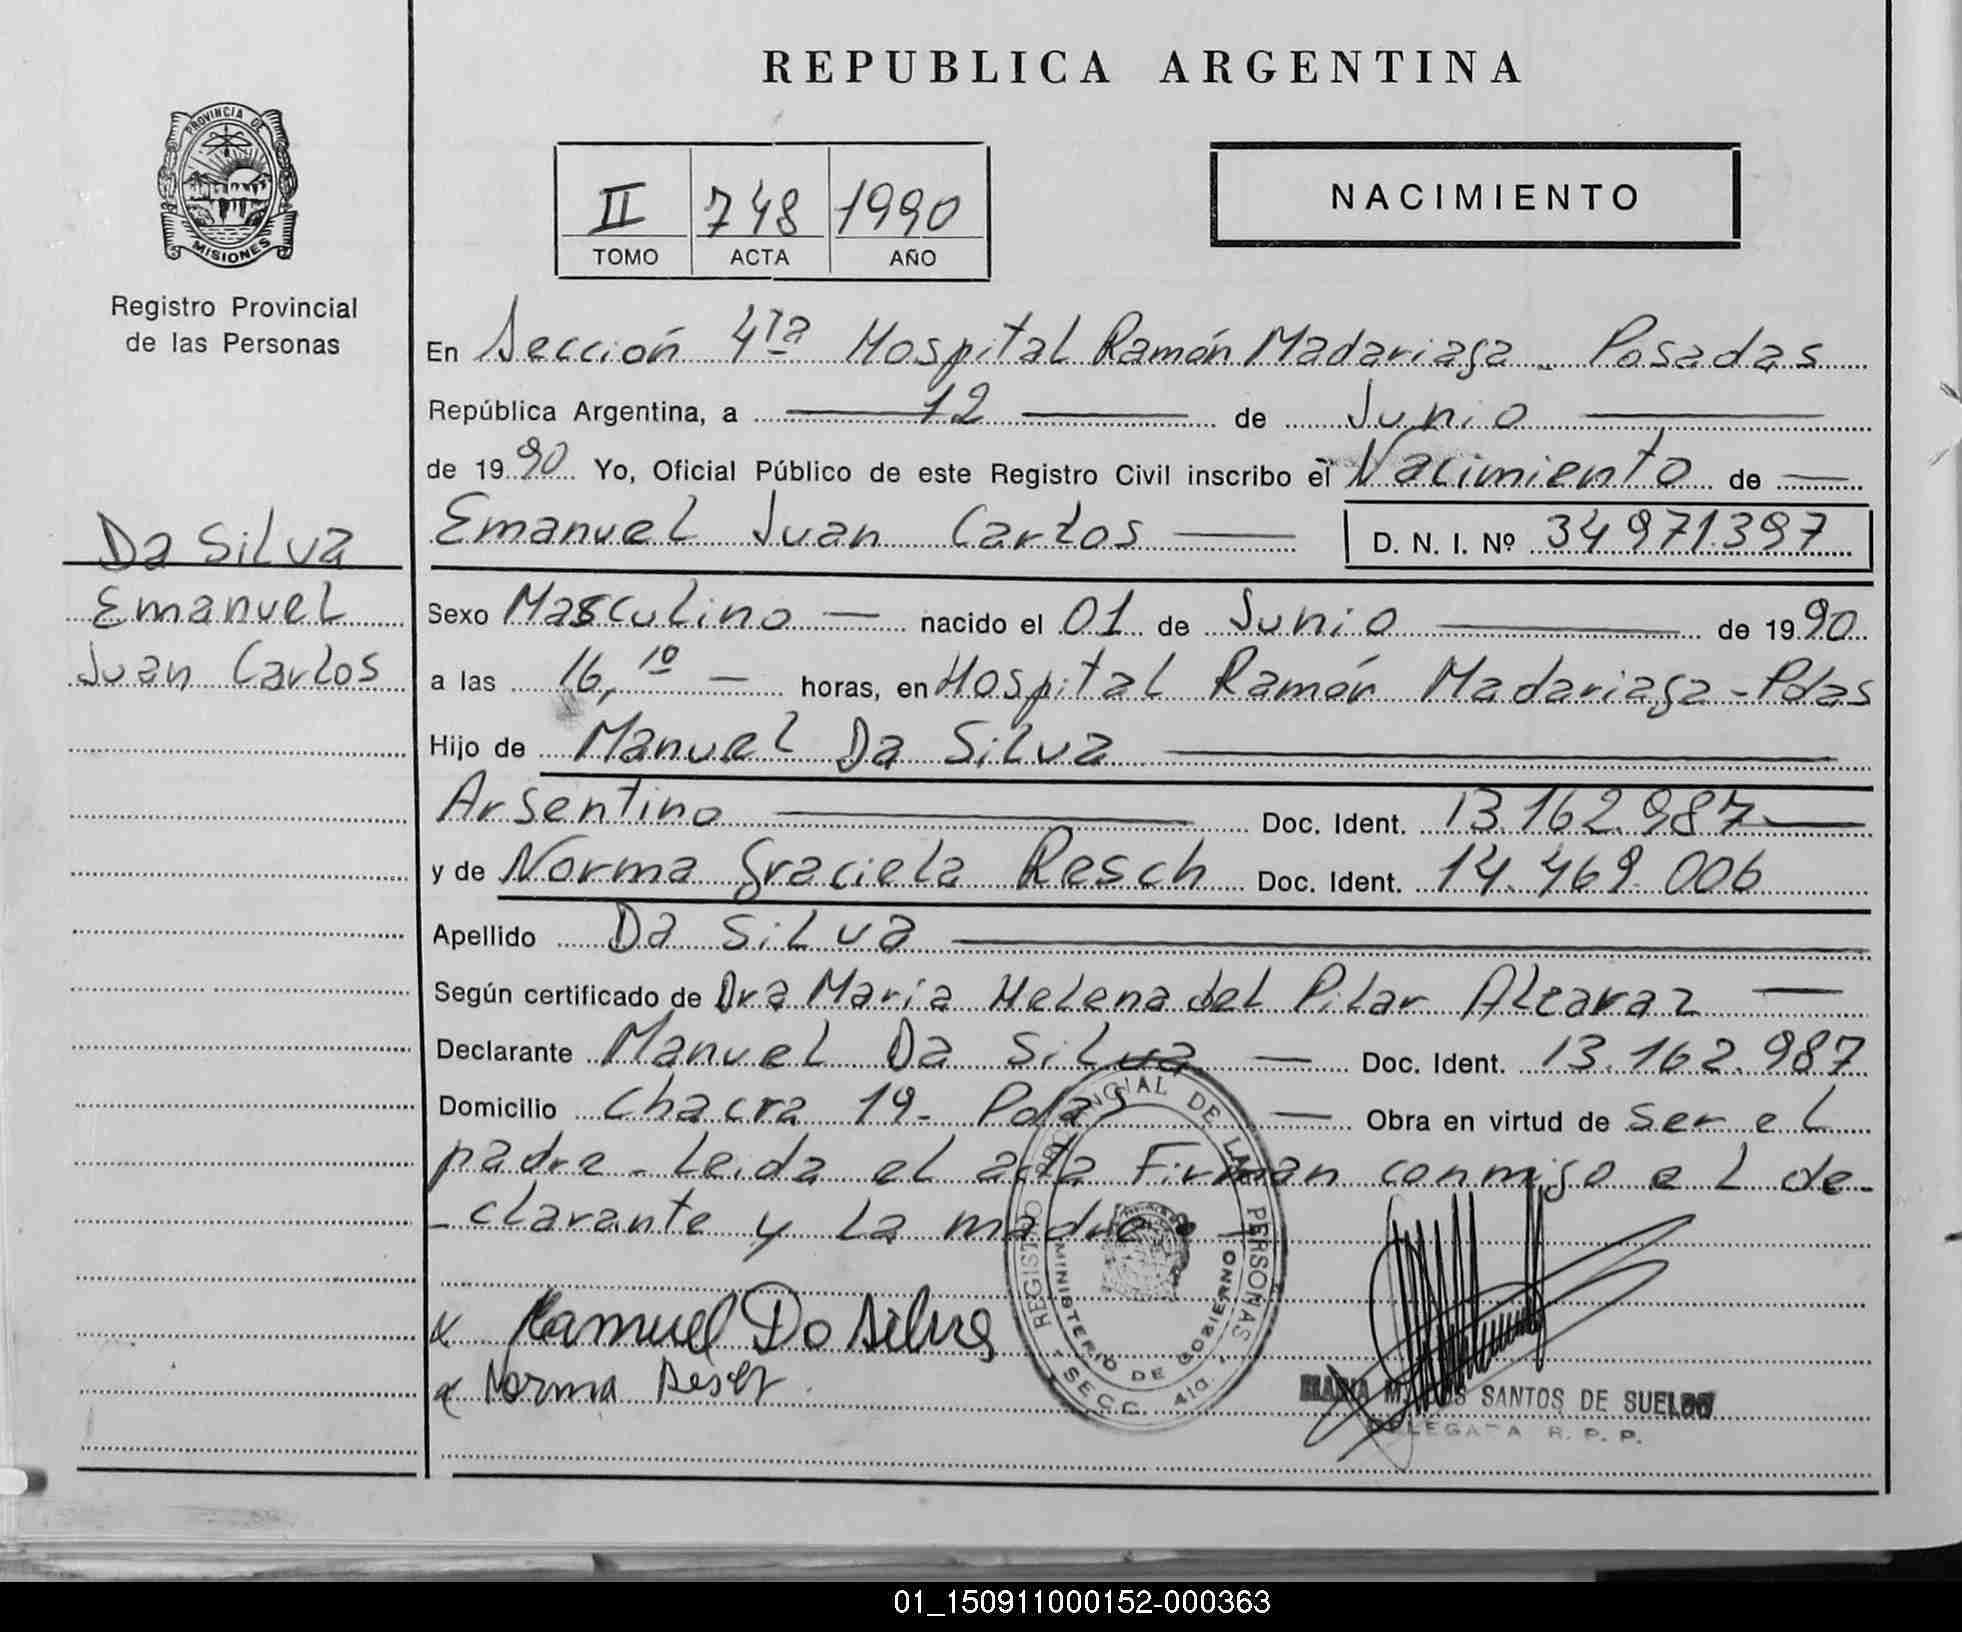 REPUBLICA ARGENTINA
PROVINCIA DE
MISIONES
Registro Provincial
de las Personas
II 748 1990
TOMO ACTA AÑO
NACIMIENTO
En Sección 4ta Hospital Ramón Madariaga - Posadas
República Argentina, a 12 de Junio
de 1990 Yo, Oficial Público de este Registro Civil inscribo el Nacimiento de
Emanuel Juan Carlos D. N. I. Nº 34971.397
Da Silva
Emanuel
Juan Carlos
Sexo Masculino nacido el 01 de Junio de 1990
a las 16,10 horas, en Hospital Ramón Madariaga - Pdas
Hijo de Manuel Da Silva
Argentino Doc. Ident. 13.162.987
y de Norma Graciela Resch Doc. Ident. 14.469.006
Apellido Da Silva
Según certificado de Dra María Helena del Pilar Alcaraz
Declarante Manuel Da Silva Doc. Ident. 13.162.987
Domicilio Chacra 19 - Pdas Obra en virtud de ser el
padre - Leida el acta Firman conmigo el de-
-clarante y la madre
REGISTRO PROVINCIAL DE LAS PERSONAS
MINISTERIO DE GOBIERNO
SECC. 4ta.
x Manuel Da Silva
x Norma Resch
MARIA M. SANTOS DE SUELDO
DELEGADA R. P. P.
01_150911000152-000363